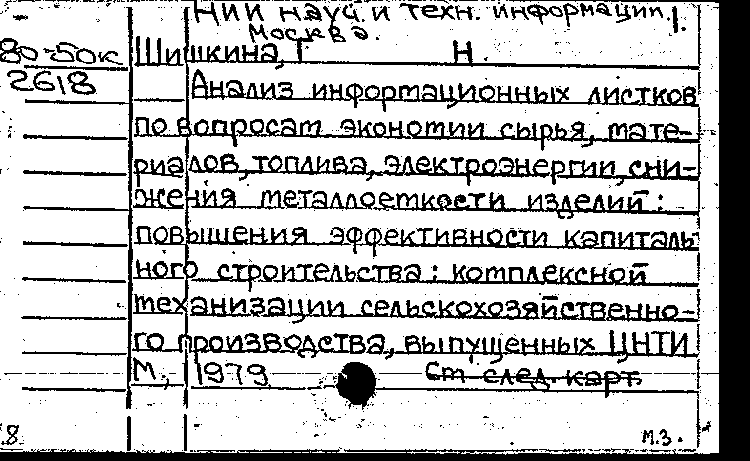 НИИ науч. и техн. информации.
Москва.
80-50к Шишкина, Г Н.
2618 Анализ информационных листков
по вопросам экономии сырья, мате-
риалов, топлива, электроэнергии, сни-
жения металлоемкости изделий:
повышения эффективности капиталь
ного строительства: комплексной
механизации сельскохозяйственно-
го производства, выпущенных ЦНТИ
М., 1979 См след. карт.
8 М.З.